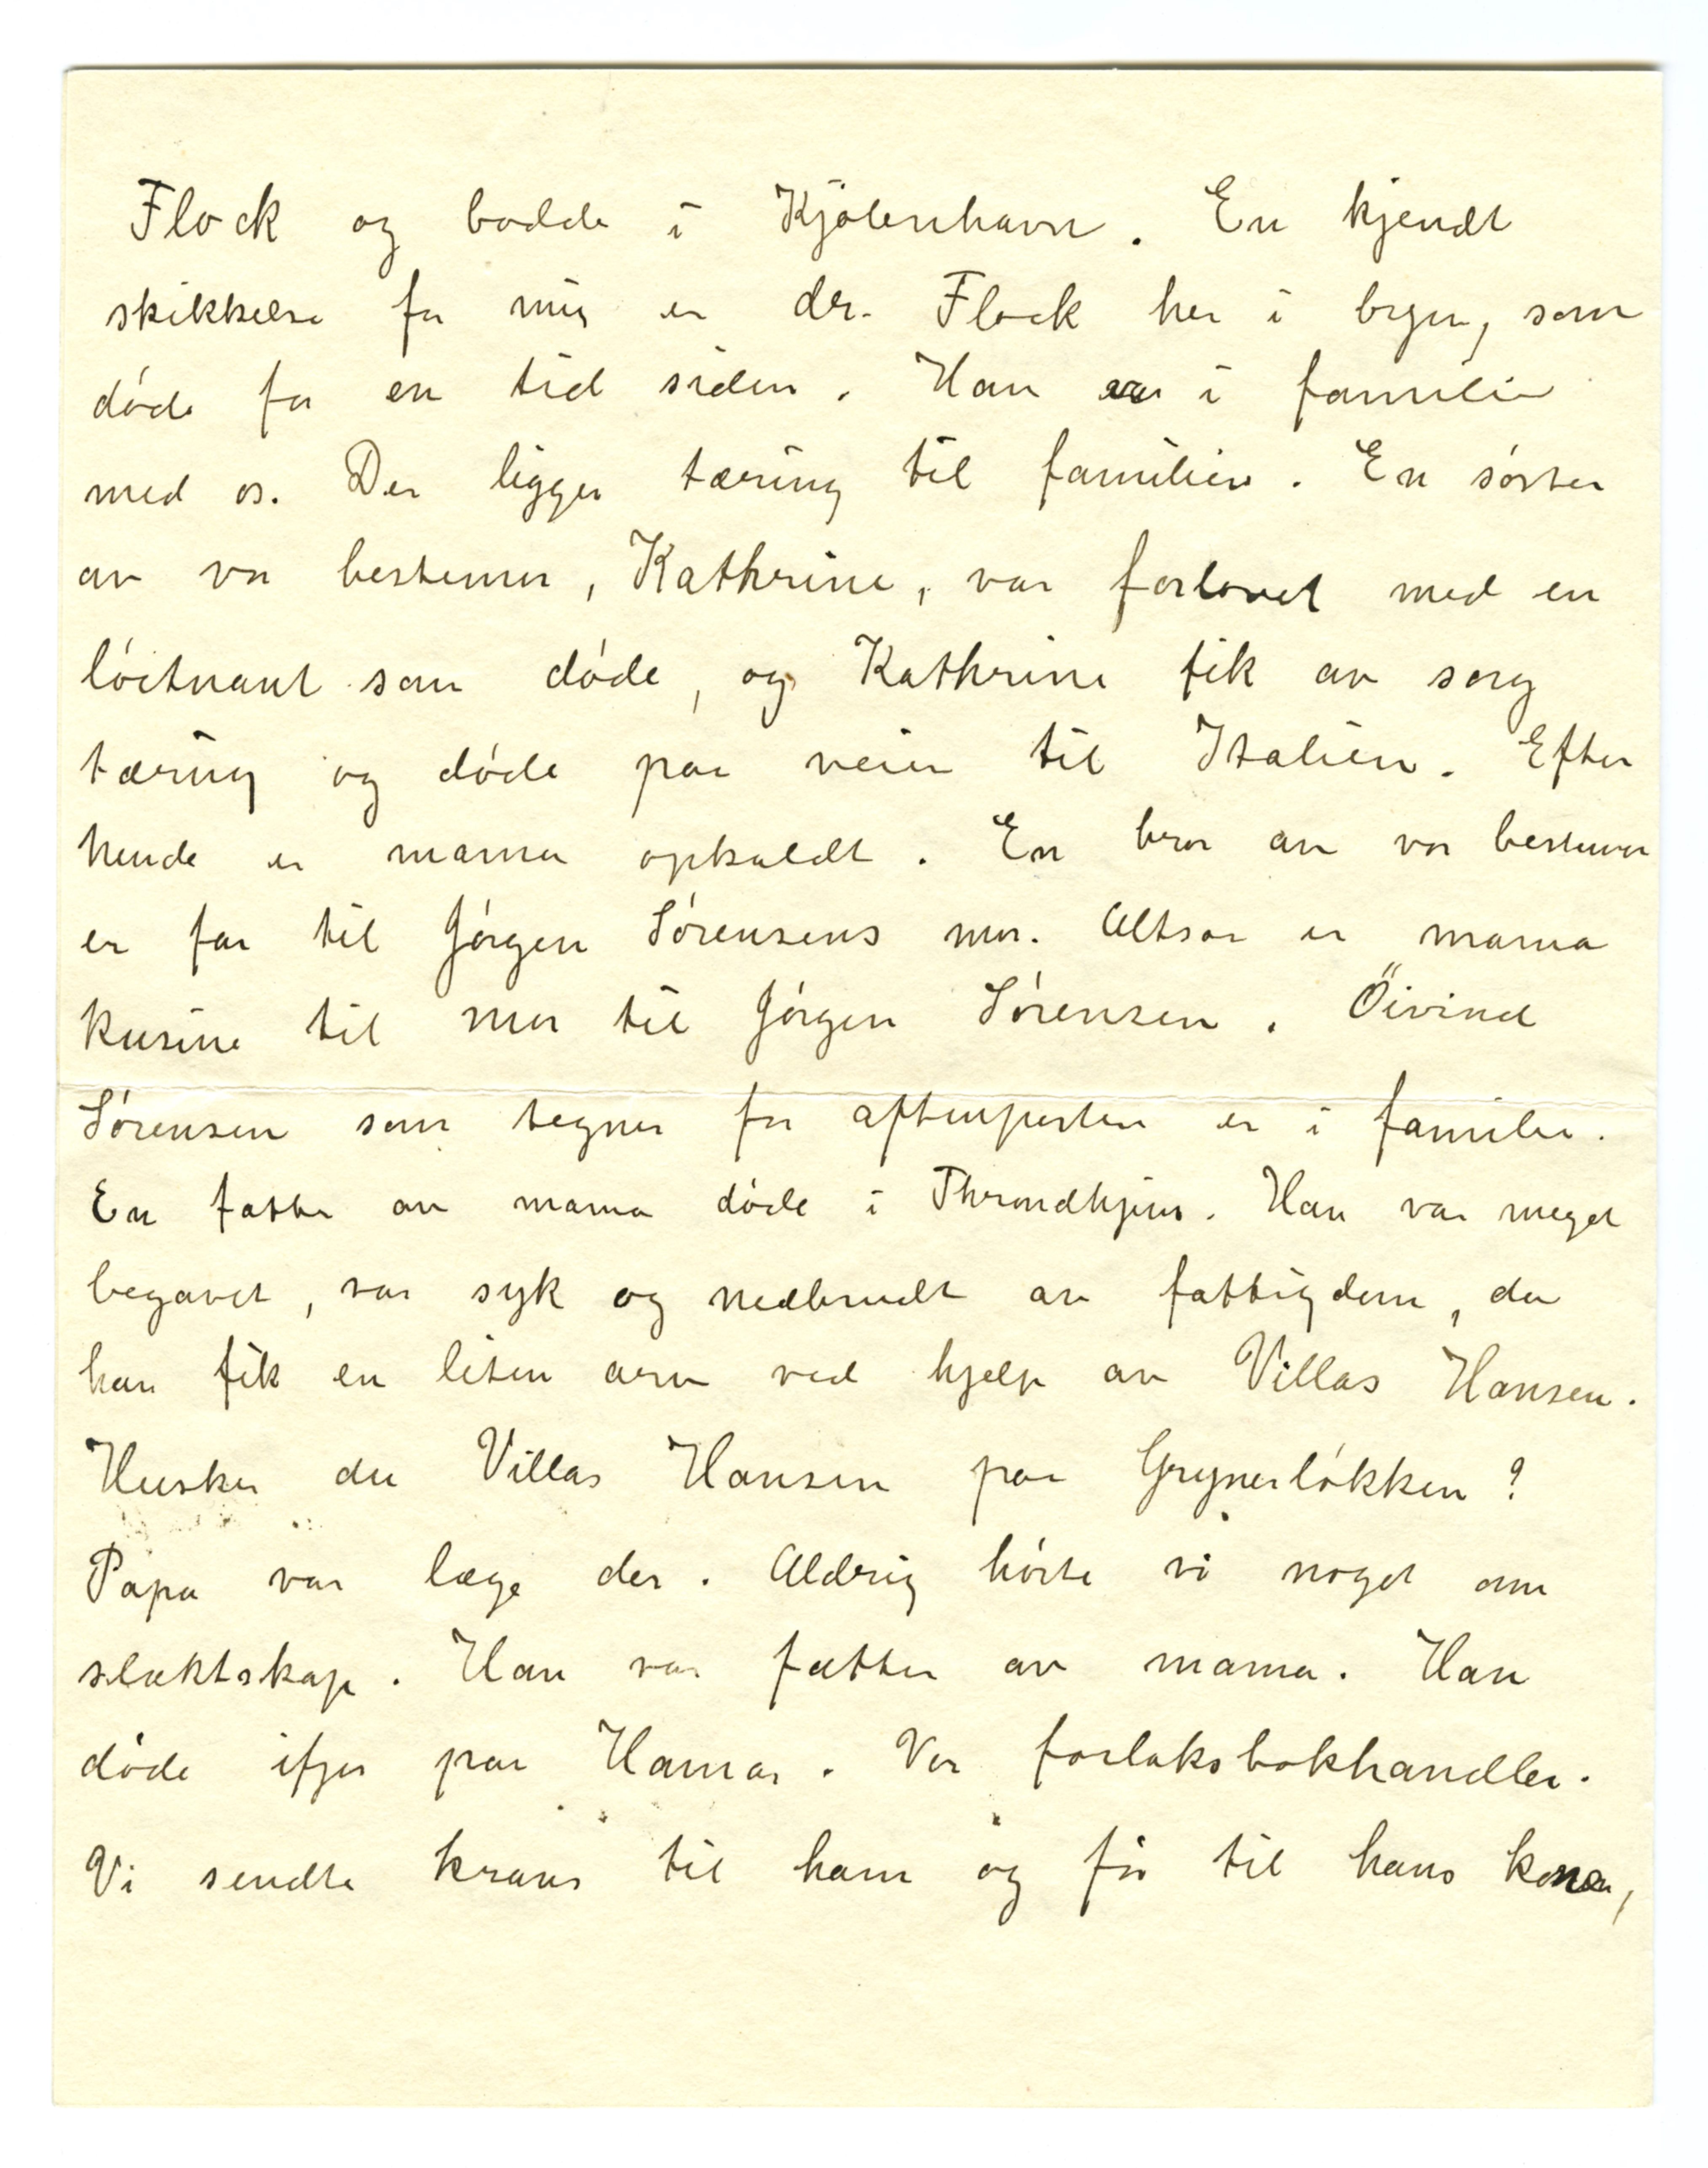 Flock og bodde i Kjøbenhavn. En kjendt
skikkelse for mig er dr. Flock her i byen, som
døde for en tid siden. Han var i familie
med os. Der ligger tæring til familien. En søster
av vor bestemor, Kathrine, var forlovet med en
løitnant som døde, og Kathrine fik av sorg
tæring og døde paa veien til Italien. Efter
hende er mama opkaldt. En bror av vor bestemor
er far til Jørgen Sørensens mor. Altsaa er mama
kusine til mor til Jørgen Sørensen. Öivind
Sørensen som tegner for aftenposten er i familie.
En fætter av mama døde i Throndhjem. Han var meget
begavet, var syk og nedbrudt av fattigdom, da
han fik en liten arv ved hjelp av Villas Hansen.
Husker du Villas Hansen paa Grynerløkken?
Papa var læge der. Aldrig hørte vi noget om
slektskap. Han var fætter av mama. Han
døde ifjor paa Hamar. Var forlaksbokhandler.
Vi sendte krans til ham og før til hans kone,